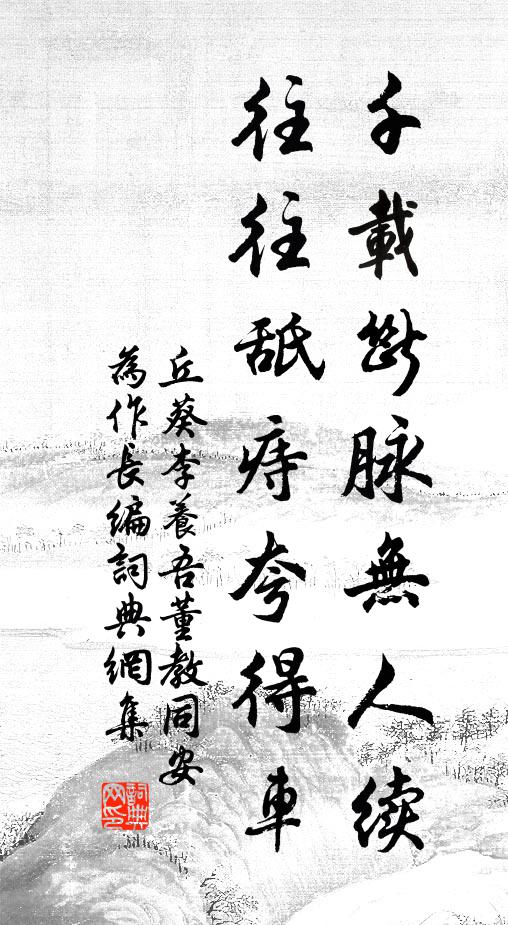 千載斷脉無人續
往往舐痔夸得車
丘葵李養吾董教同安
為作長編詞典網集
詞典網印